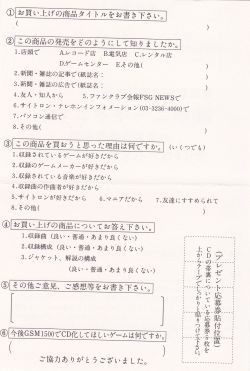 ①お買い上げの商品タイトルをお書き下さい。
( )
②この商品の発売をどのようにして知りましたか。
1.店頭で A.レコード店 B.電気店 C.レンタル店
D.ゲームセンター Eその他( )
2.新聞・雑誌の記事で(紙誌名: )
3.新聞・雑誌の広告で(紙誌名: )
4.友人・知人から 5.ファンクラブ会報FSG NEWSで
6.サイトロン・テレホンインフォメーション(03-3236-4000)で
7.パソコン通信で
8.その他( )
③この商品を買おうと思った理由は何ですか。(いくつでも)
1.収録されているゲームが好きだから
2.収録されているゲームメーカーが好きだから
3.収録されている音楽が好きだから
4.収録曲の作曲者が好きだから
5.サイトロンが好きだから 6.マニアだから 7.友達にすすめられて
8.その他( )
④お買い上げの商品についてお答え下さい。
1.収録曲 (良い・普通・あまり良くない)
2.収録構成 (良い・普通・あまり良くない)
3.ジャケット、解説の構成
(良い・普通・あまり良くない)
⑤その他ご意見、ご感想等をお書き下さい。
⑥今後GSM1500でCD化してほしいゲームは何ですか。
( )
ご協力ありがとうございました。
(プレゼント応募券貼付位置)
CDの帯裏についている応募券を枚